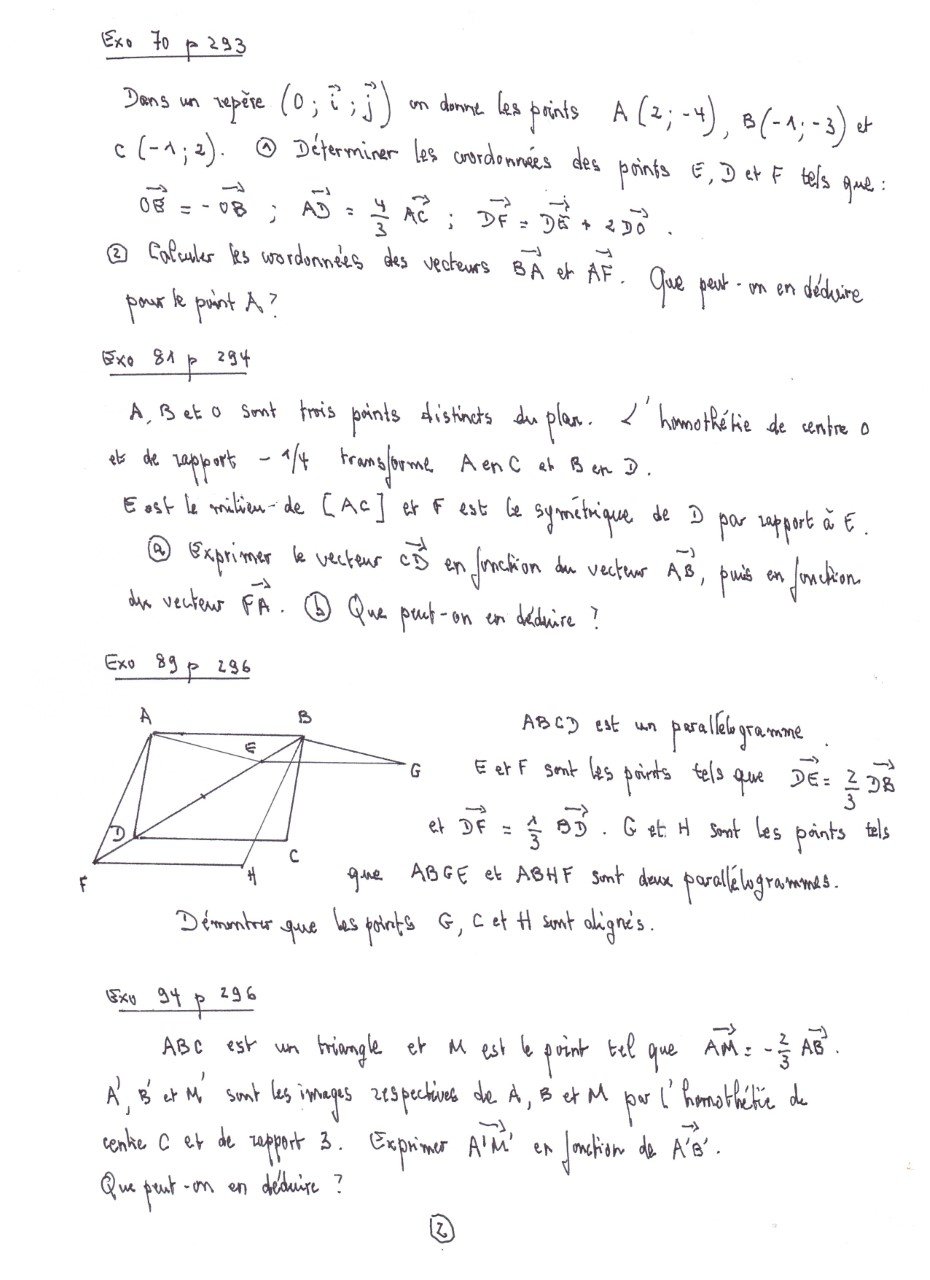 Exo 70 p 293
Dans un repère (O; i⃗; j⃗) on donne les points A(2;-4), B(-1;-3) et
C(-1;2). ① Déterminer les coordonnées des points E, D et F tels que :
OE⃗ = -OB⃗ ; AD⃗ = 4/3 AC⃗ ; DF⃗ = DE⃗ + 2DO⃗.
② Calculer les coordonnées des vecteurs BA⃗ et AF⃗. Que peut-on en déduire
pour le point A ?
Exo 81 p 294
A, B et O sont trois points distincts du plan. L'homothétie de centre O
et de rapport -1/4 transforme A en C et B en D.
E est le milieu de [AC] et F est le symétrique de D par rapport à E.
ⓐ Exprimer le vecteur CD⃗ en fonction du vecteur AB⃗, puis en fonction
du vecteur FA⃗. ⓑ Que peut-on en déduire ?
Exo 89 p 296
A
B
E
G
D
C
F
H
ABCD est un parallélogramme.
E et F sont les points tels que DE⃗ = 2/3 DB⃗
et DF⃗ = 1/3 BD⃗. G et H sont les points tels
que ABGE et ABHF sont deux parallélogrammes.
Démontrer que les points G, C et H sont alignés.
Exo 94 p 296
ABC est un triangle et M est le point tel que AM⃗ = -2/3 AB⃗.
A', B' et M' sont les images respectives de A, B et M par l'homothétie de
centre C et de rapport 3. Exprimer A'M'⃗ en fonction de A'B'⃗.
Que peut-on en déduire ?
②